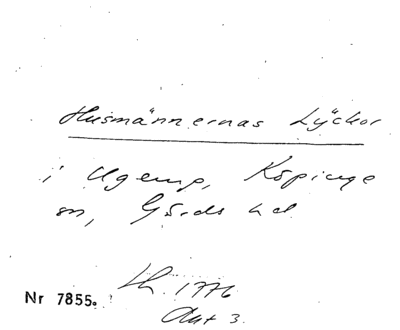 Husmännernas Lyckor
i Ugerup, Köpinge
sn, Gärds hd
Nr 7855.
1776
Akt 3.